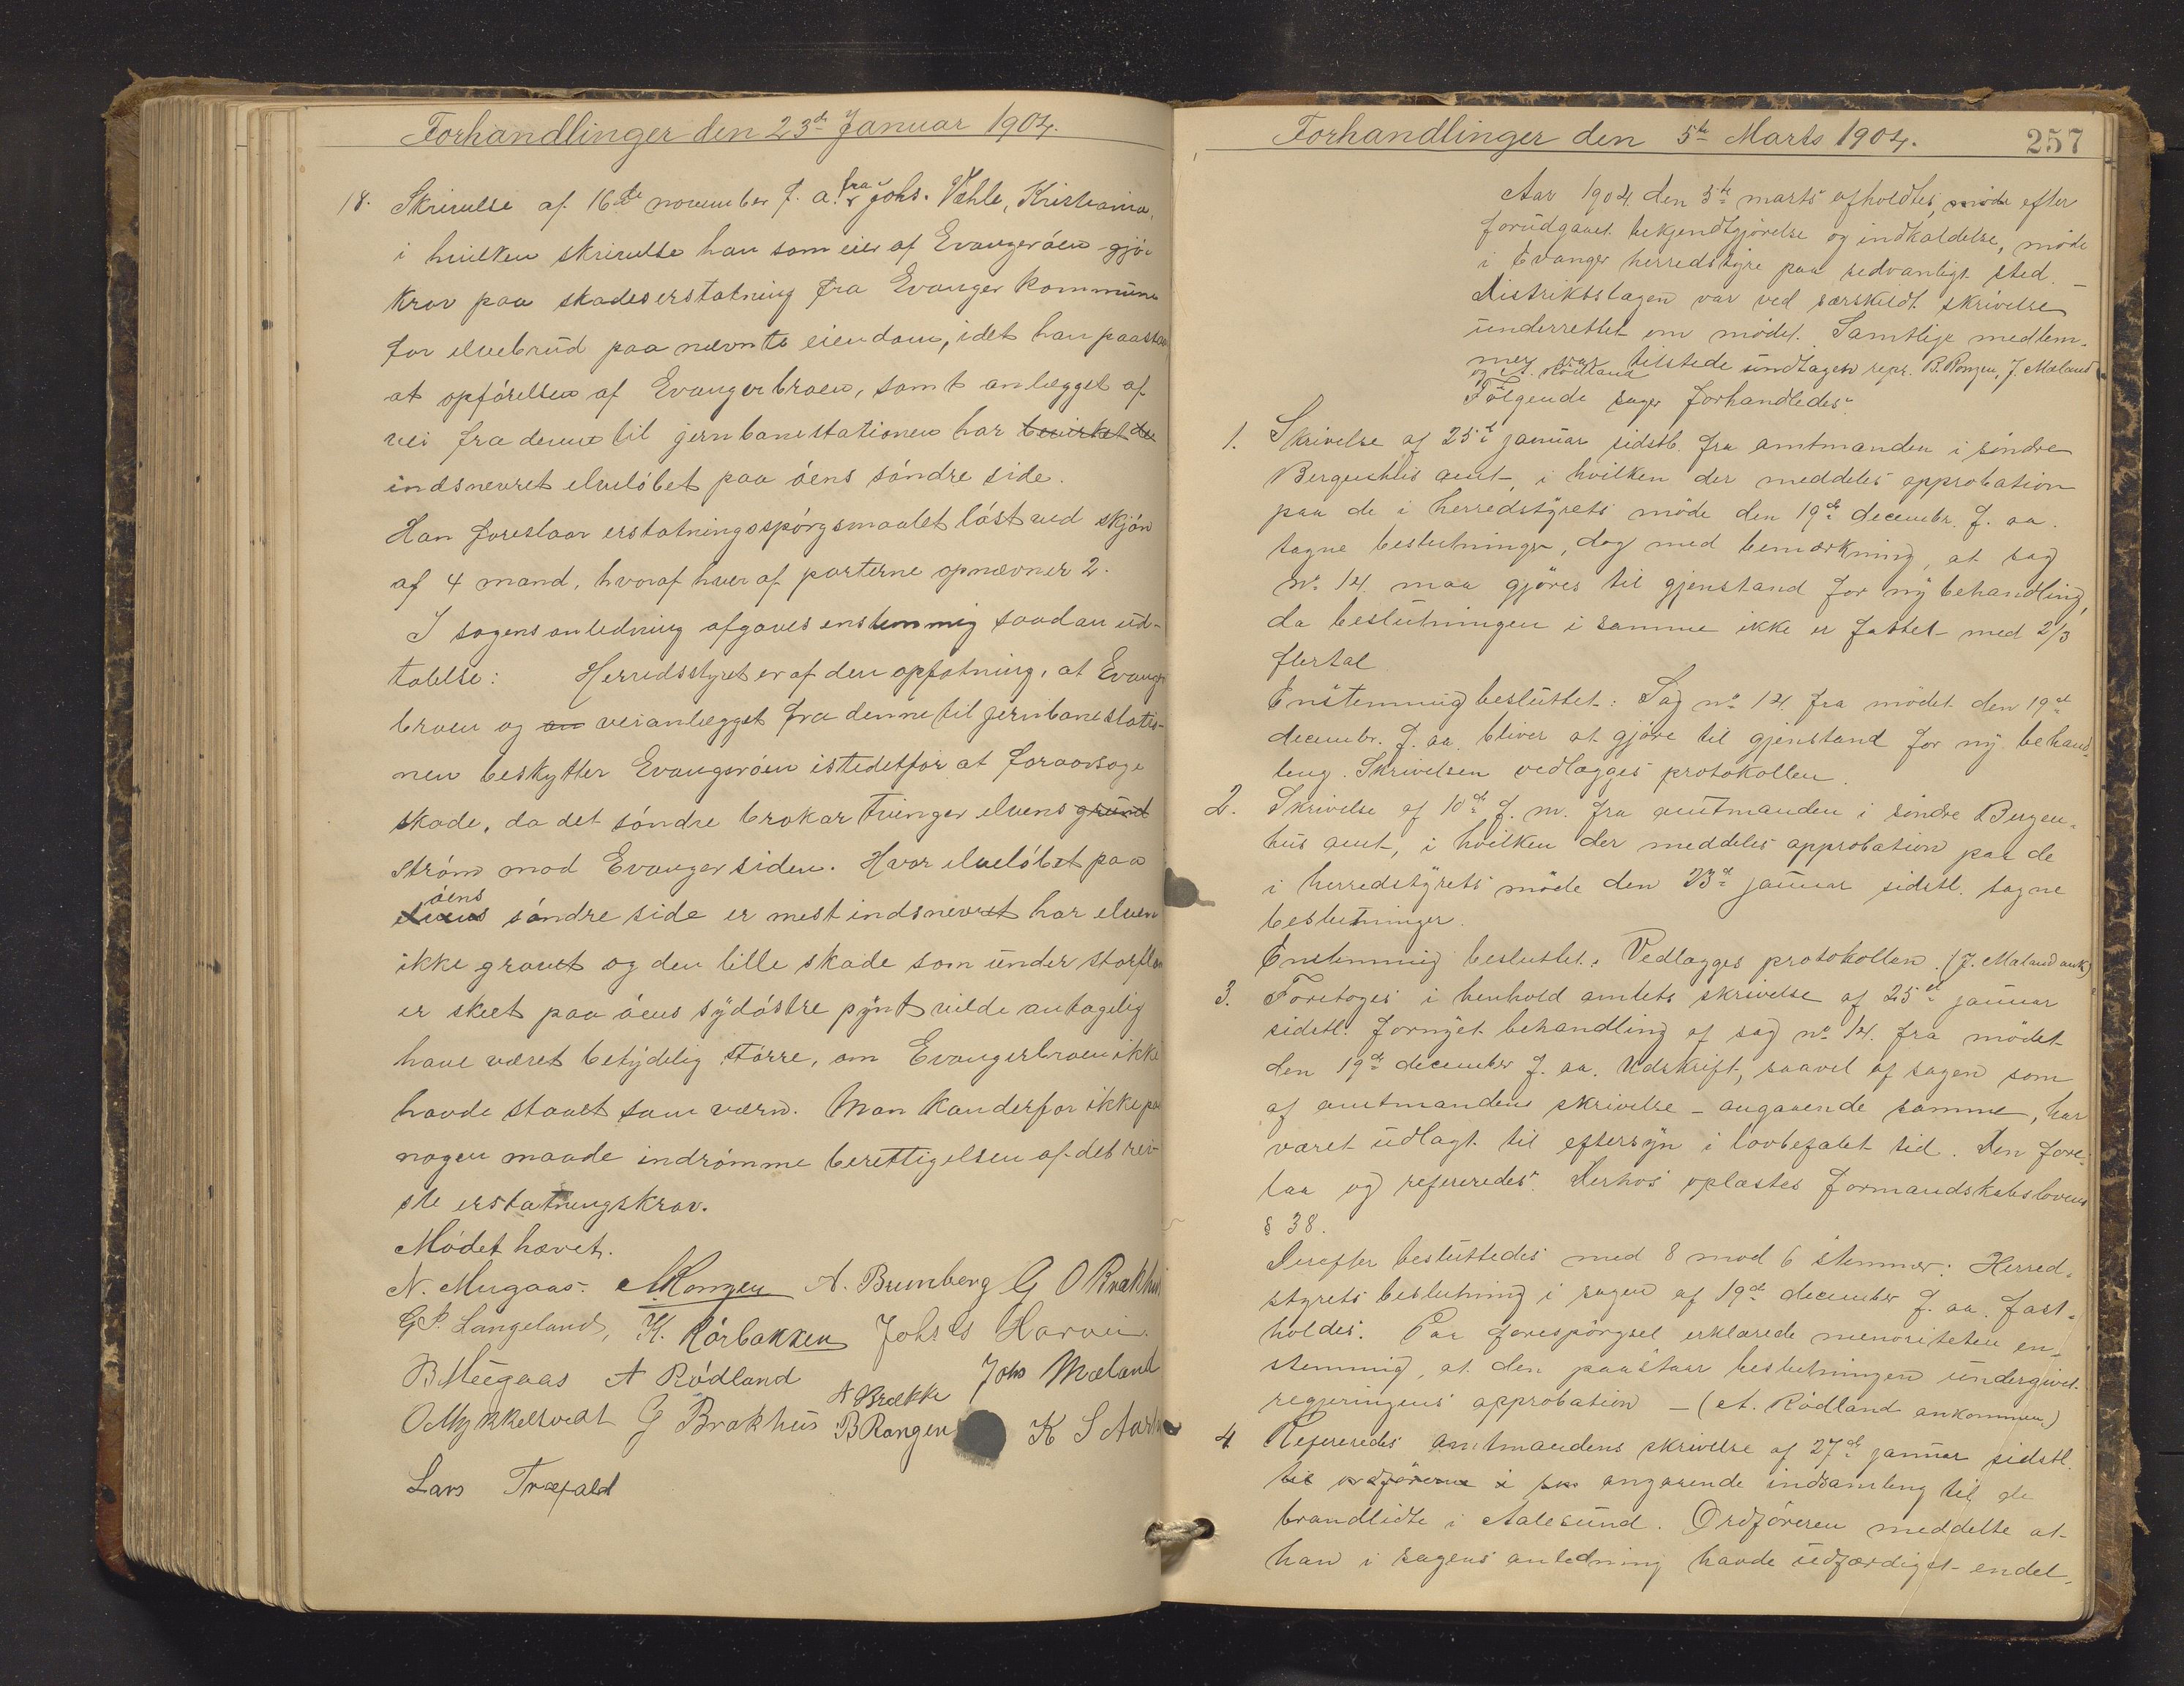 Forhandlinger den 23de Januar 1904.
18. Skrivelse af 16de november f. a. fra Johs. Vehle, Kristiania,
i hvilken skrivelse han som eier af Evangerøen gjør
krav paa skadeserstatning fra Evanger kommune
for elvebrud paa nævnte eiendom, idet han paastaa
at opførelsen af Evangerbroen, samt anlægget af
vei fra denne til jernbanestationen har bevirket de
indsnevret elveløbet paa øens søndre side.
Han foreslaar erstatningsspørgsmaalet løst ved skjøn
af 4 mand, hvoraf hver af parterne opnævner 2.
I sagens anledning afgaves enstemmig saadan ud-
talelse: Herredsstyret er af den opfatning, at Evanger
broen og an veianlægget fra denne til jernbanestatio-
nen beskytter Evangerøen istedetfor at foraarsage
skade, da det søndre brokar tvinger elvens grund
strøm mod Evangersiden. Hvor elveløbet paa
øens
elvens søndre side er mest indsnevret har elven
ikke gravet og den lille skade som under storflom
er skeet paa øens sydøstre pynt vilde antagelig
have været betydelig større, om Evangerbroen ikke
havde staaet som værn. Man kan derfor ikke paa
nogen maade indrømme berettigelsen af det rei-
ste erstatningskrav.
Mødet hævet.
N. Mugaas. M Horgen A. Brunborg G O Brakhus
G P. Langeland, K. Rørbakken Johs Ls Horvei.
B Mügaas A Rødland A Brække Johs Mæland
O Mykkeltvedt G Brakhus B Rongen K S Aarhu
Lars Træfald
Forhandlinger den 5te Marts 1904. 257
Aar 1904 den 5te marts afholdtes møde efter
forudgaaet bekjendtgjørelse og indkaldelse, møde
i Evanger herredstyre paa sedvanligt sted. –
Distriktslægen var ved særskildt skrivelse
underrettet om mødet. Samtlige medlem-
mer var tilstede undtagen repr. B. Rongen, J. Mæland
og A. Rødland
Følgende sager forhandledes:
1. Skrivelse af 25de januar sidstl. fra amtmanden i søndre
Bergenhus amt, i hvilken der meddeles approbation
paa de i herredstyrets møde den 19de decembr. f. aa.
tagne beslutninger, dog med bemærkning, at sag
No 14 maa gjøres til gjenstand for ny behandling,
da beslutningen i samme ikke er fattet med 2/3
flertal.
Enstemmig besluttet: Sag no 14 fra mødet den 19de
decembr. f. aa. bliver at gjøre til gjenstand for ny behand-
ling. Skrivelsen vedlægges protokollen.
2. Skrivelse af 10de f. m. fra amtmanden i søndre Bergen-
hus amt, i hvilken der meddeles approbation paa de
i herredstyrets møde den 23de januar sidstl. tagne
beslutninger.
Enstemmig besluttet: Vedlægges protokollen. (J. Mæland ank)
3. Foretoges i henhold amtets skrivelse af 25de januar
sidstl. fornyet behandling af sag no 14. fra mødet
den 19de december f. aa. Udskrift, saavel af sagen som
af amtmandens skrivelse – angaaende samme, har
været udlagt til eftersyn i lovbefalet tid. Den fore-
laa og refereredes. Derhos oplæstes formandskabslovens
§ 38.
Derefter besluttedes med 8 mod 6 stemmer: Herred-
styrets beslutning i sagen af 19de december f. aa. fast-
holdes. Paa forespørgsel erklærede menoriteten en-
stemmig, at den paastaar beslutningen undergivet
regjeringens approbation – (A. Rødland ankommen)
4 Refereredes amtmandens skrivelse af 27de januar sidstl.
til ordførerne i angaaende indsamling til de
brandlidte i Aalesund. Ordføreren meddelte at
han i sagens anledning havde udfærdiget endel